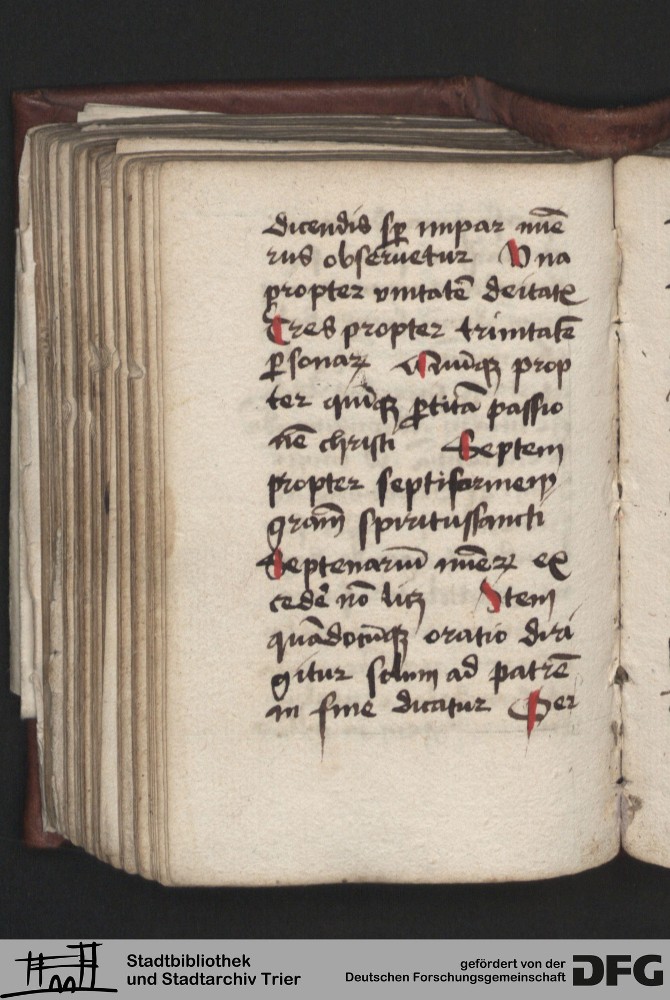 dicendis sꝑ impar nūe
rus obseruetur Vna
propter vnitatē deitatꝭ
Tres propter trinitatē
ꝑsonaꝝ Quiqꝫ prop
ter quīqꝫ ꝑtitā passio
nē christi Septem
propter septiformem
grām̄ spiritussancti
Septenariū nūeꝝ ex
cedē nō licꝫ Item
quādocūqꝫ oratio diri
gitur solum ad patrē
in fine dicatur Per
Stadtbibliothek
und Stadtarchiv Trier
gefördert von der
Deutschen Forschungsgemeinschaft
DFG